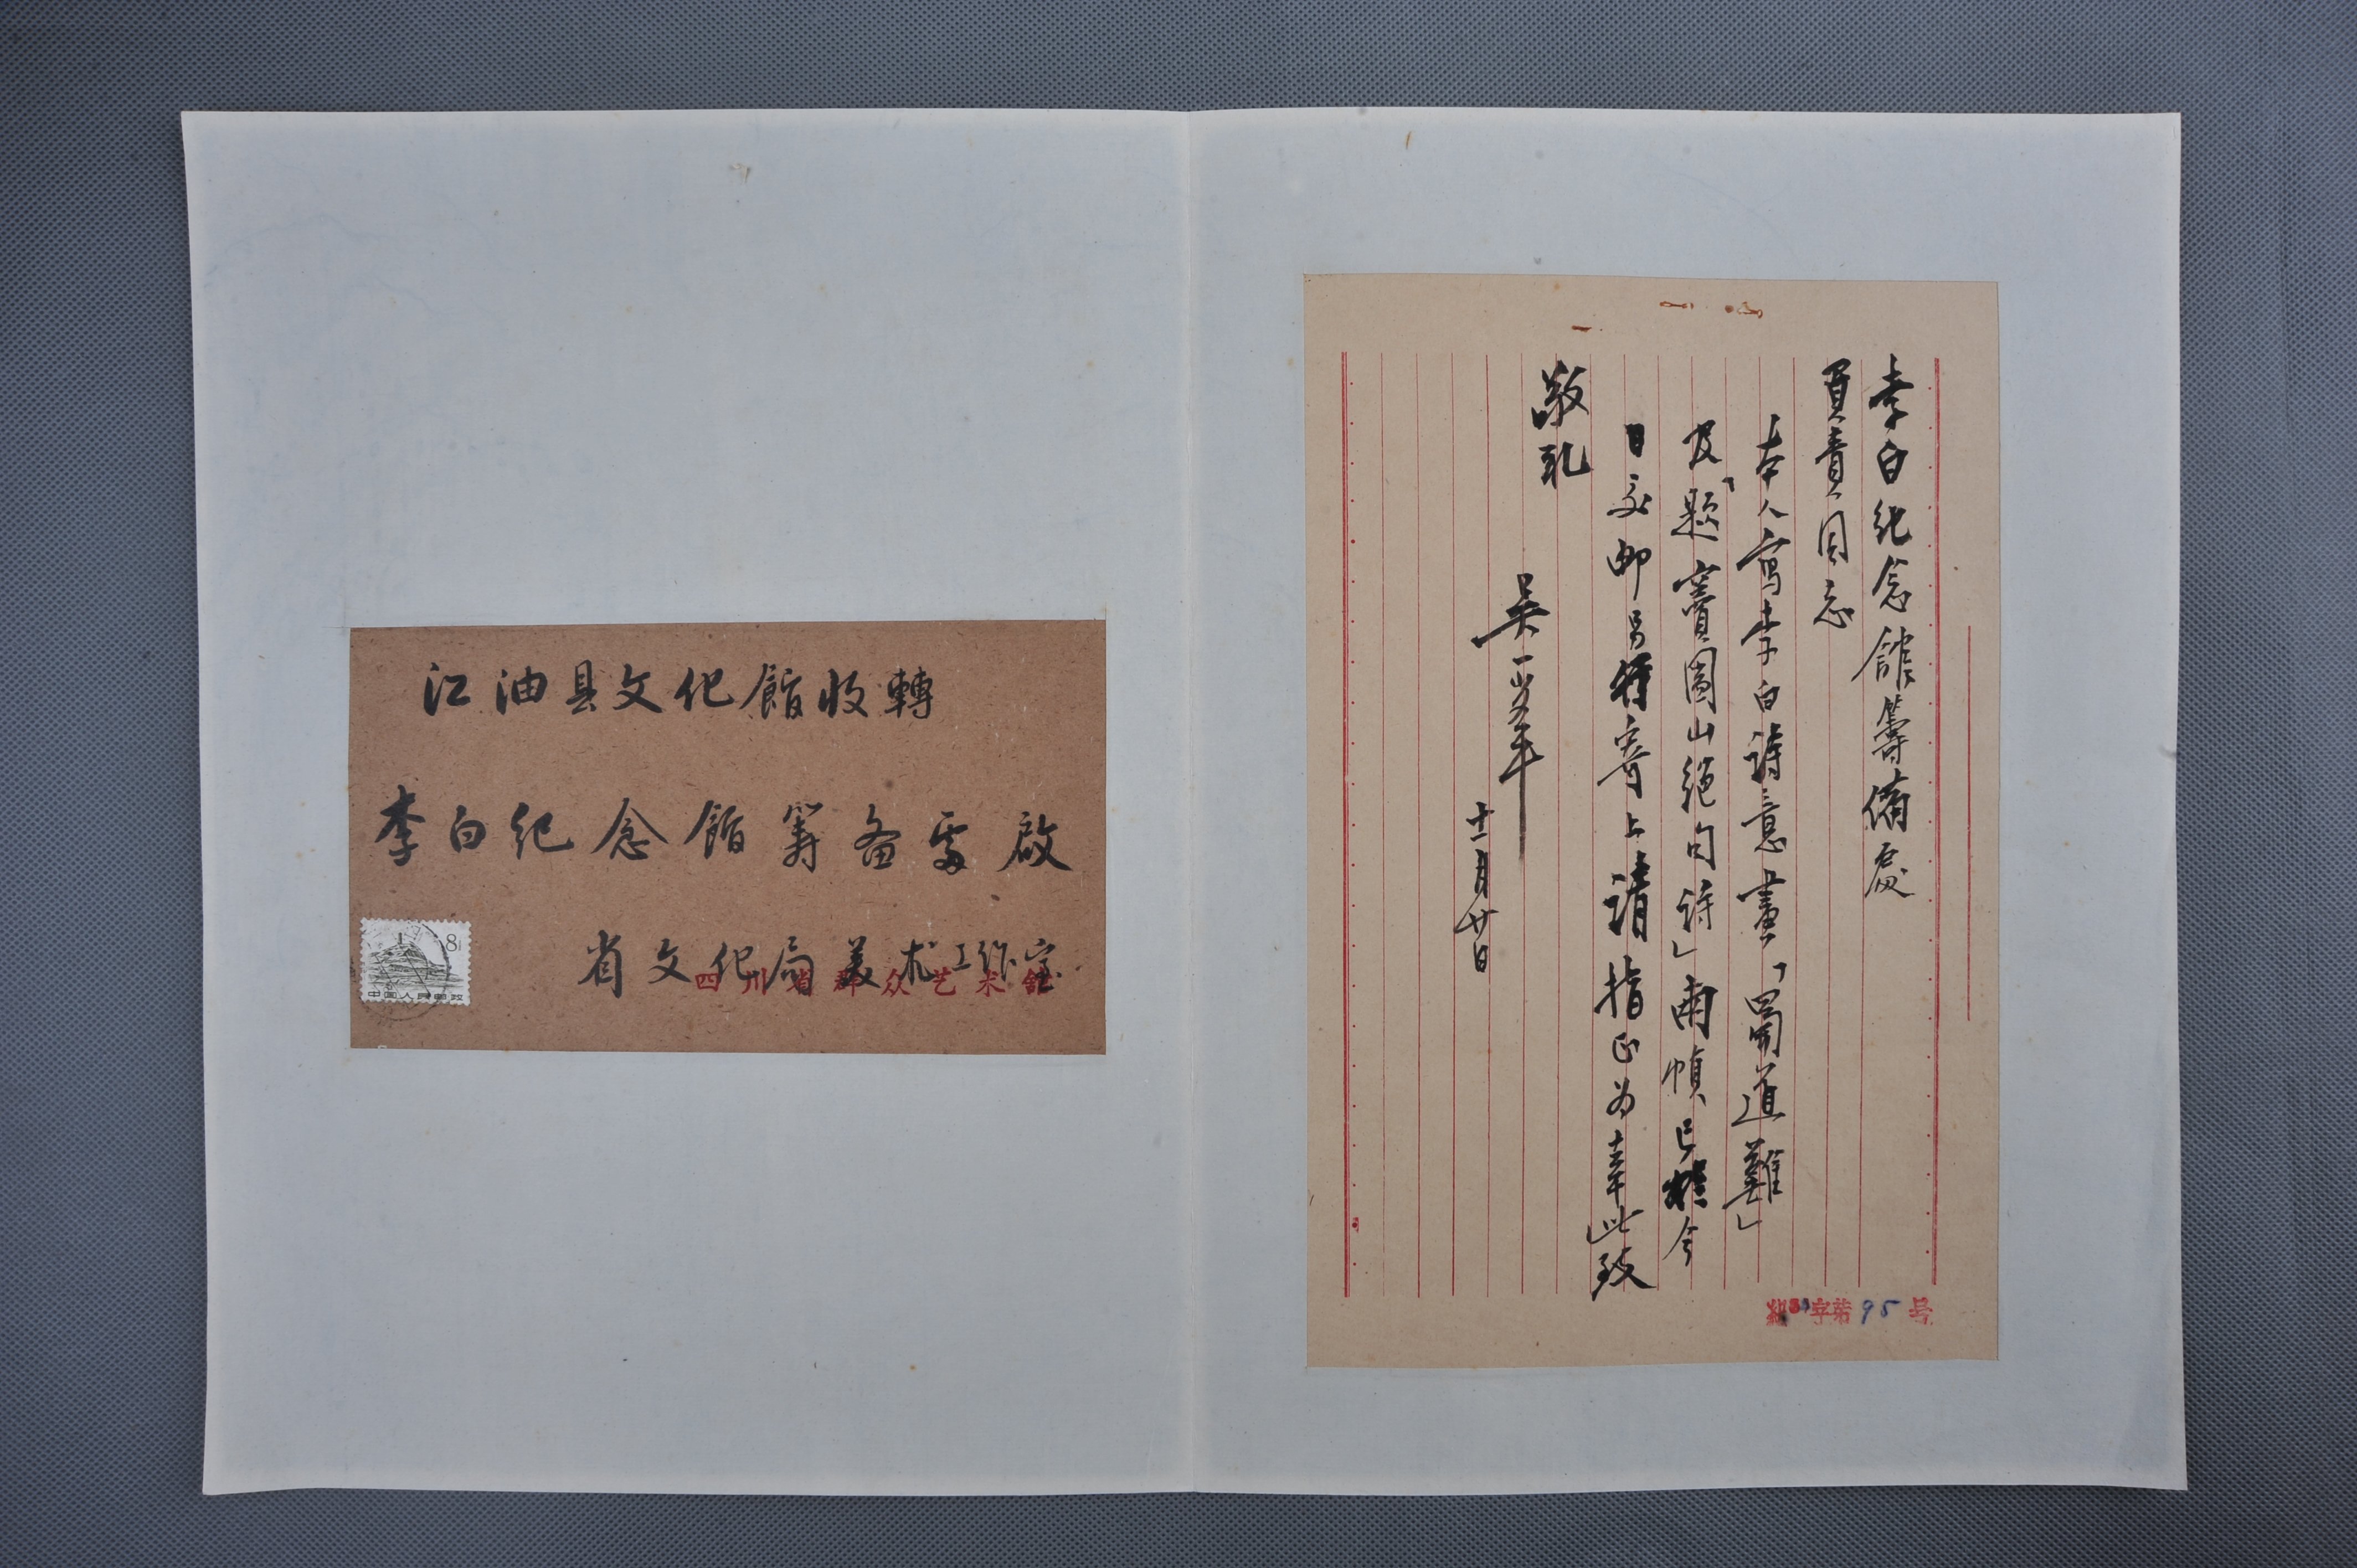 江油县文化館收轉
李白纪念館筹备處啟
省文化局美术工作室
四川省群众艺术館
8
中国人民邮政
李白纪念館籌備處
負責同志
本人寫李白詩意畫「蜀道難」
及「題竇圌山絕句詩」兩幀、已 今
日交邮另 寄上請指正为幸此致
敬礼
吴一峯
十一月廿日
字第95号